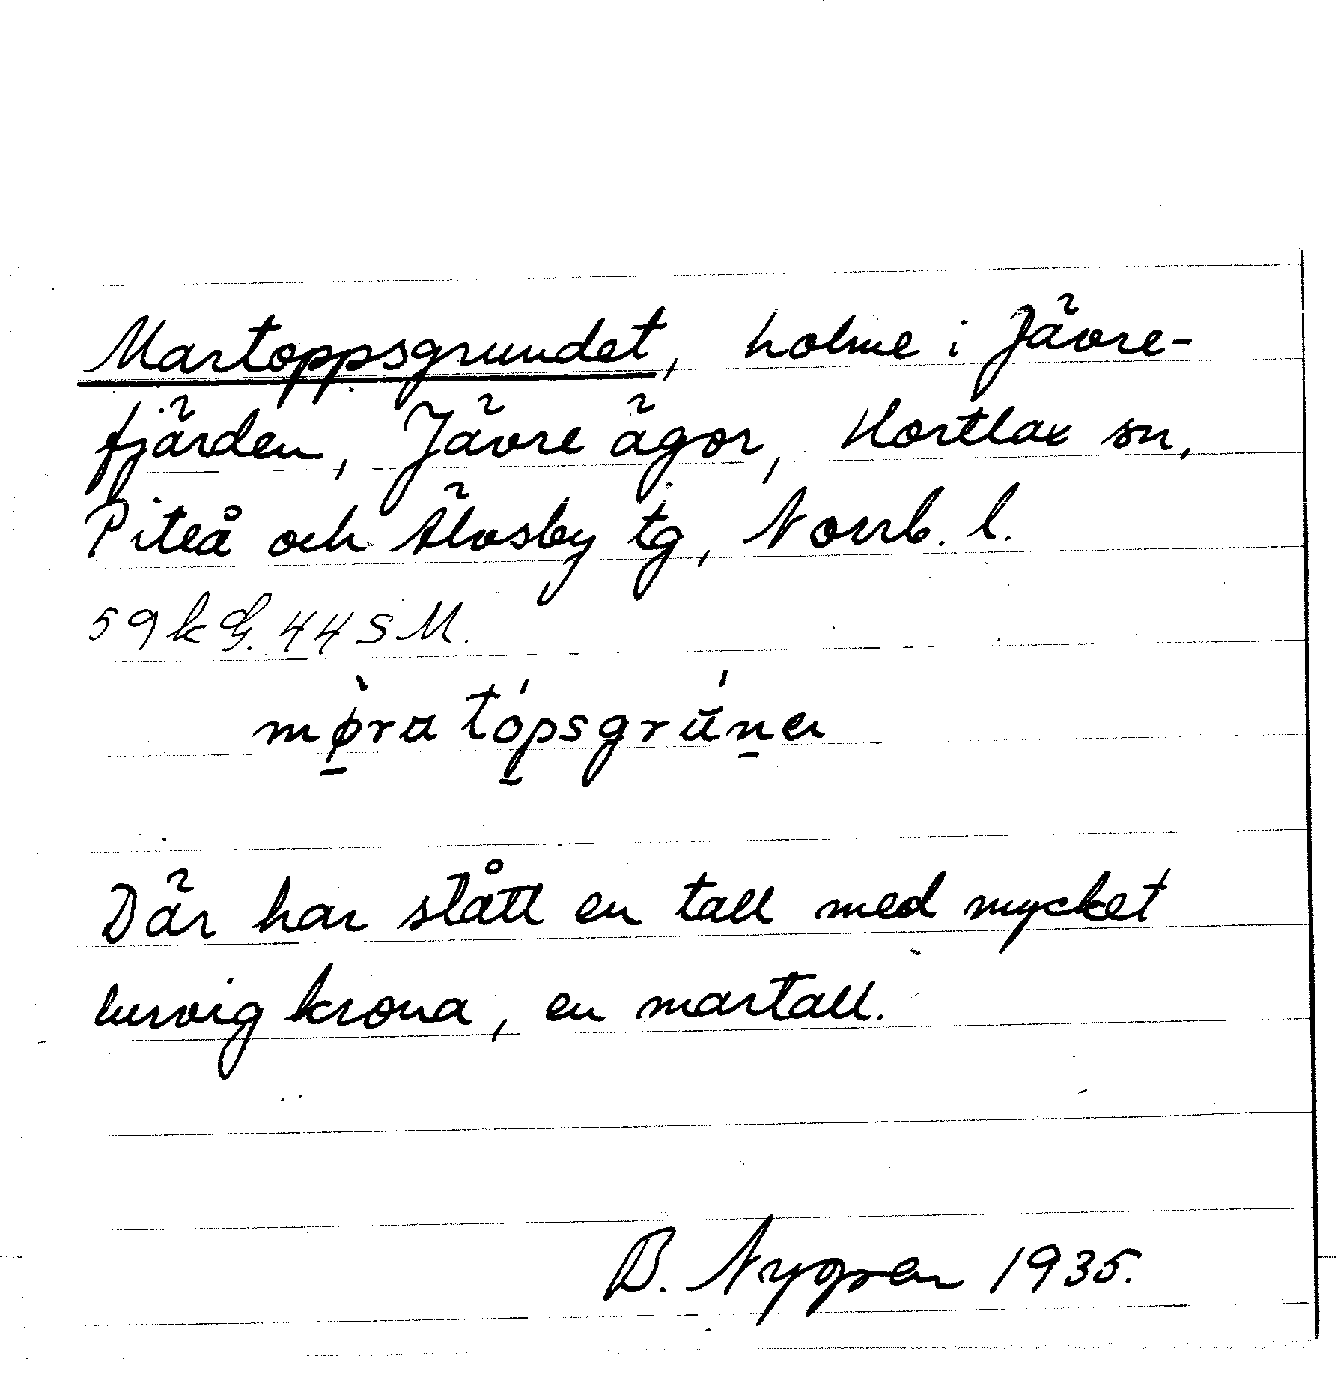 Martoppsgrundet, holme i Jävre-
fjärden, Jävre ägor, Hortlax sn,
Piteå och Älvsby tg, Norrb. l.
59 k G. 44 S M.
mø̱̀ra tó̱psgrú̱na
Där har stått en tall med mycket
lurvig krona, en martall.
B. Nygren 1935.